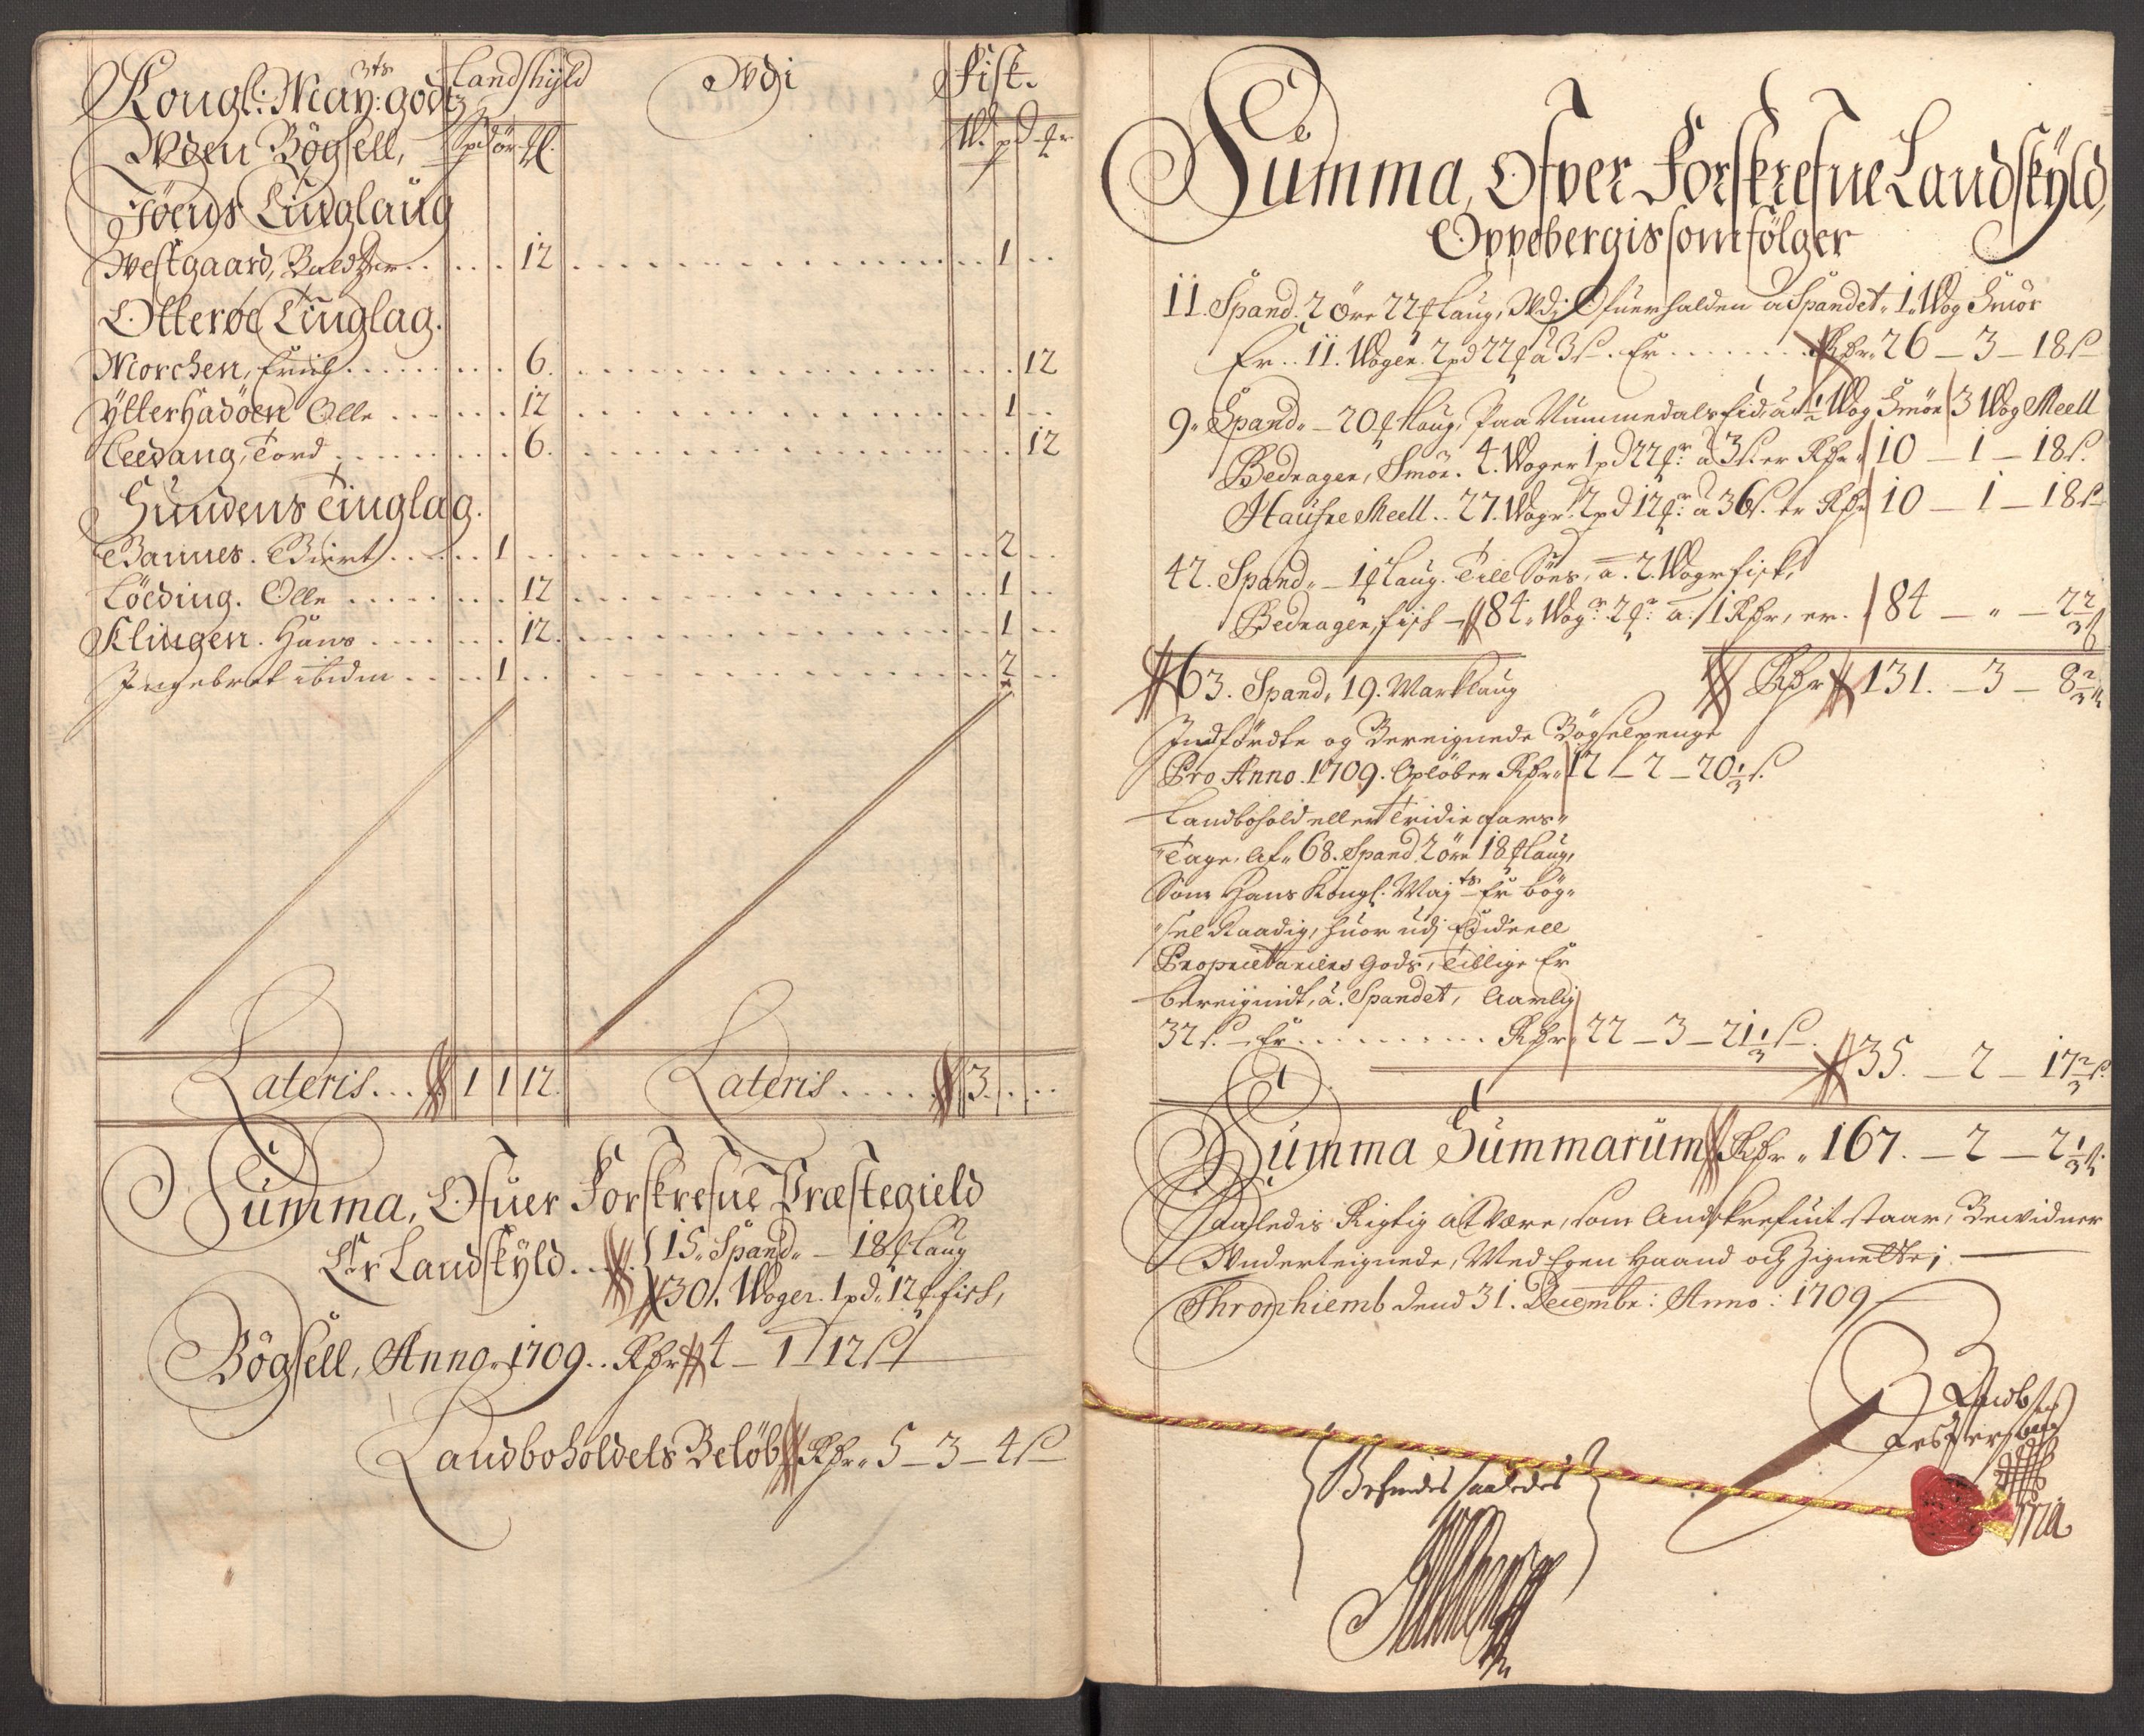 Kongl: May:ts godtz
Landskyld
Udi
Fisk.
Uden Bögsell,
Spd ör ℔.
W. pd ℔r
Föens Tinglaug
Westgaard, Baldtzer . . . . . 12 . . . . . 1 . .
Otterøe Tinglag.
Morchen, Erich . . . . . 6. . . . . . 12
Ytterhadöen Olle . . . . . 12 . . . . . 1 . .
Leedang, Tord . . . . . 6. . . . . . 12
Hundens Tinglag.
Bannes. Biert . . . . . 1 . . . . . 2 . .
Löeding. Olle . . . . . 12 . . . . . 1 . .
Klingen. Hans . . . . . 12. . . . . . 1 . .
Ingebret ibidm . . . . . 1 . . . . . 2 . .
Lateris . . . 1 1 12. Lateris . . . . . 3. . . .
Summa, Ofuer Forskrefne Præstegield
Er Landskyld. . . 15. Spand. – 18 ℔ Laug
30. Woger. 1 pd. 12 ℔ fisk,
Bögsell, Anno. 1709. . Rdr 4 – 1 – 12 ß
Landboholdets Belöb Rdr. 5 – 3 – 4 ß
Summa, Ofver Forskrefne Landskyld,
Oppebergis som fölger
11. Spand. 2 öre 22 ℔ Laug, Udj Ofuerhalden a Spandet. 1. Wog Smör
Er. . 11. Woger. 2 pd 22 ℔ à 3 ß. Er . . . . . . Rdr. 26 – 3 – 18 ß
9. Spand. – 20 ℔ Laug, Paa Nummedals sida à 1/2 Wog Smör 3 Wog Meell
Bedrager, Smör. 4. Woger 1 pd 22 ℔r à 3 ß er Rdr. 10 – 1 – 18 ß.
Haufre Meell. . 27. Wogr. 2 pd 12 ℔r à 36 ß. er Rdr 10 – 1 – 18 ß
42. Spand. – 1 ℔ Laug. Till Söes, à. 2. Wogr fisk,
Bedrager, fisk – 84. Wogr. 2 ℔r. à. 1 Rdr, er. 84 – " – 2 2/3 ß
63. Spand. 19. Marklaug Rdr 131. – 3 – 8 2/3 ß
Indfördte og Bereignede Bögselpenge
Pro Anno. 1709. Oplöber Rdr. 12 – 2 – 20 1/3 ß.
Landbohold eller Tridie aars-
Tage, af. 68. Spand 2 öre 18 ℔ Laug,
Som Hans Kongl. Majts Er bög-
sel Raadig, huor udj
Proprietariens Gods, Tillige Er
bereignit, à. Spandet, Aarlig
32 ß. – Er . . . . . . . . . Rdr. 22 – 3 – 21 1/3 ß. 35. – 2 – 17 2/3 ß.
Summa Summarum Rdr. 167. – 2 – 2 1/3 ß.
Saaledis Rigtig at Være, som Andskrefuit staar, Bevidner
Underteignede, Med Egen Haand och Zignette;
Thronhiemb dend 31. Decembr: Anno: 1709
Befindes saaledes